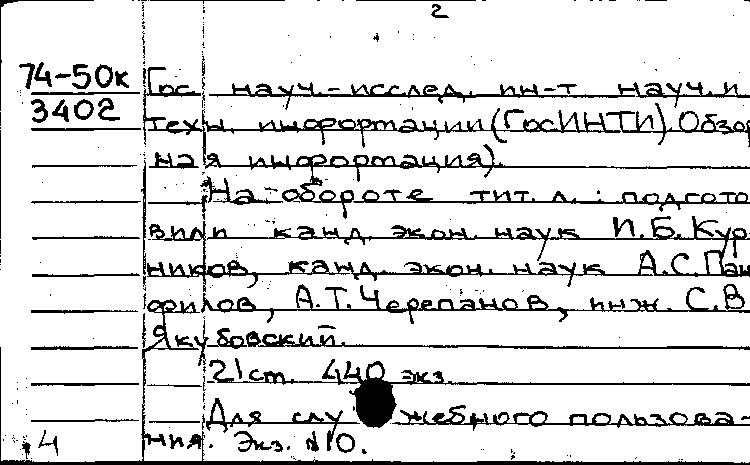 2
74-50к Гос науч.-исслед. ин-т науч. и
3402 техн. информации (ГосИНТИ). Обзор
ная информация).
На обороте тит. л.: подгото
вили канд. экон. наук И.Б. Кур
ников, канд. экон. наук А.С. Пан
филов, А.Т. Черепанов, инж. С.В
Якубовский.
21 ст. 440 экз.
Для служебного пользова-
4 ния. Экз. №0.